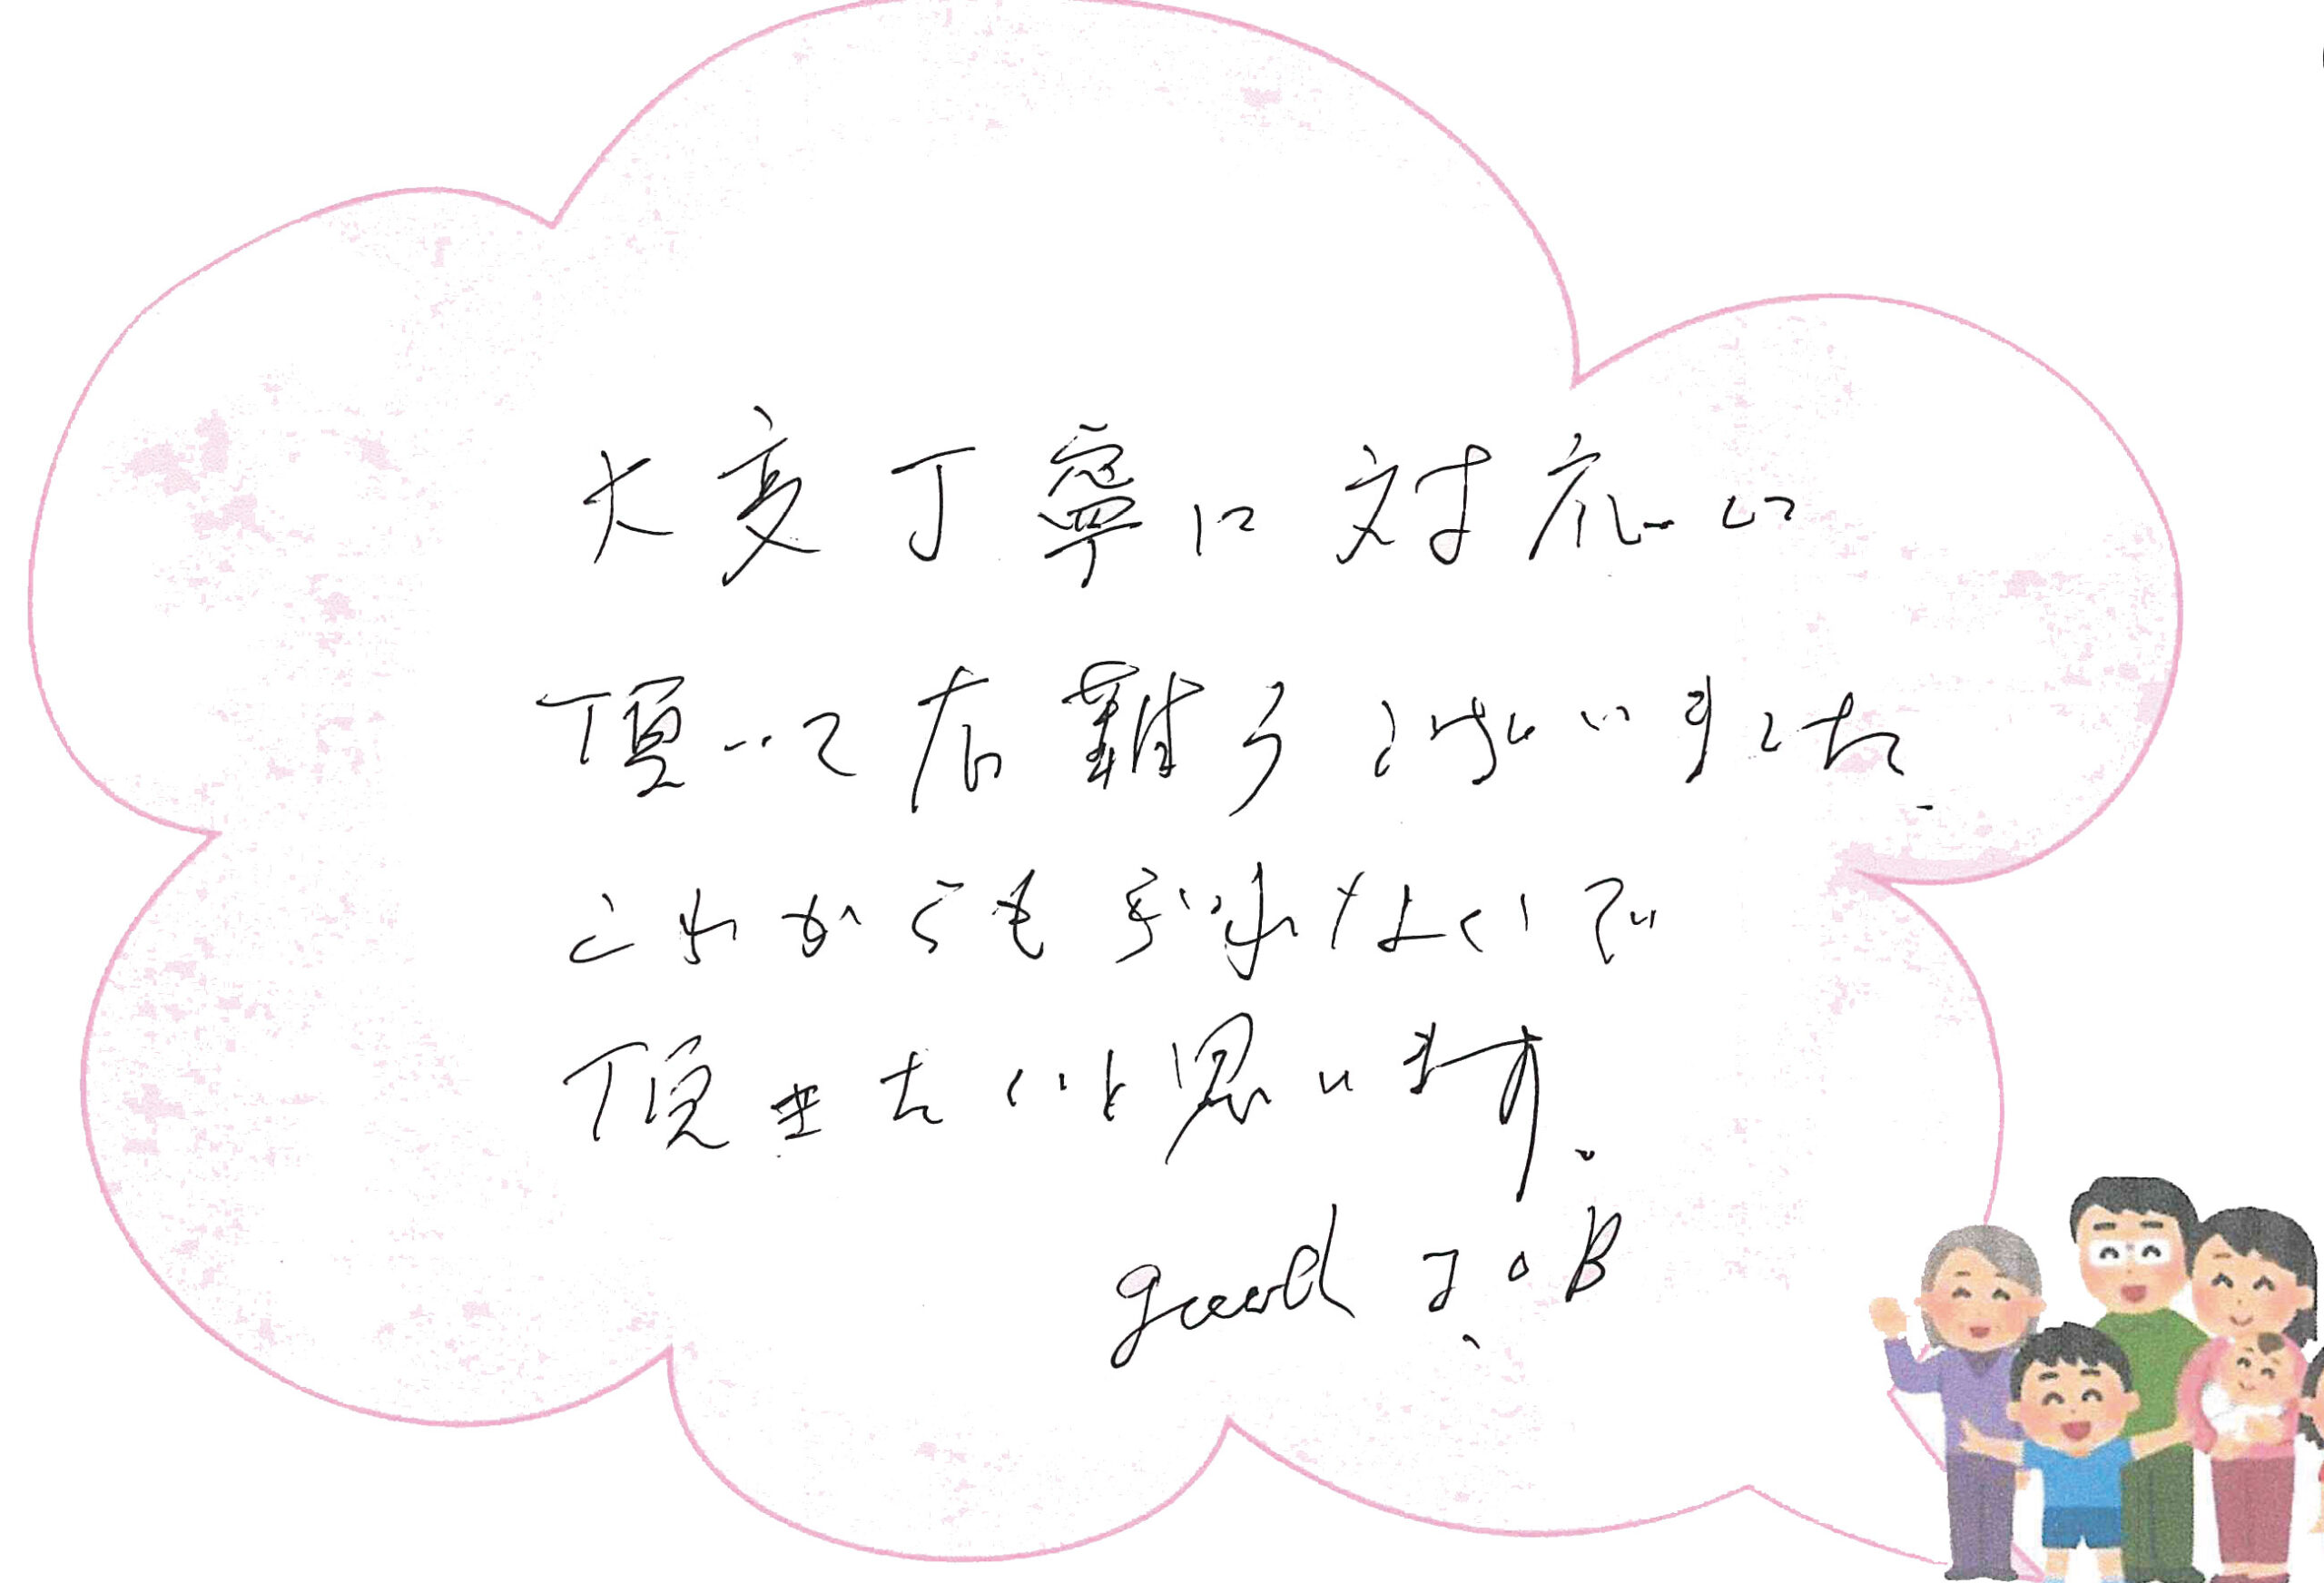 大変丁寧に対応して
頂いて有難うございました.
これからも忘れないで
頂きたいと思います。
good JOB